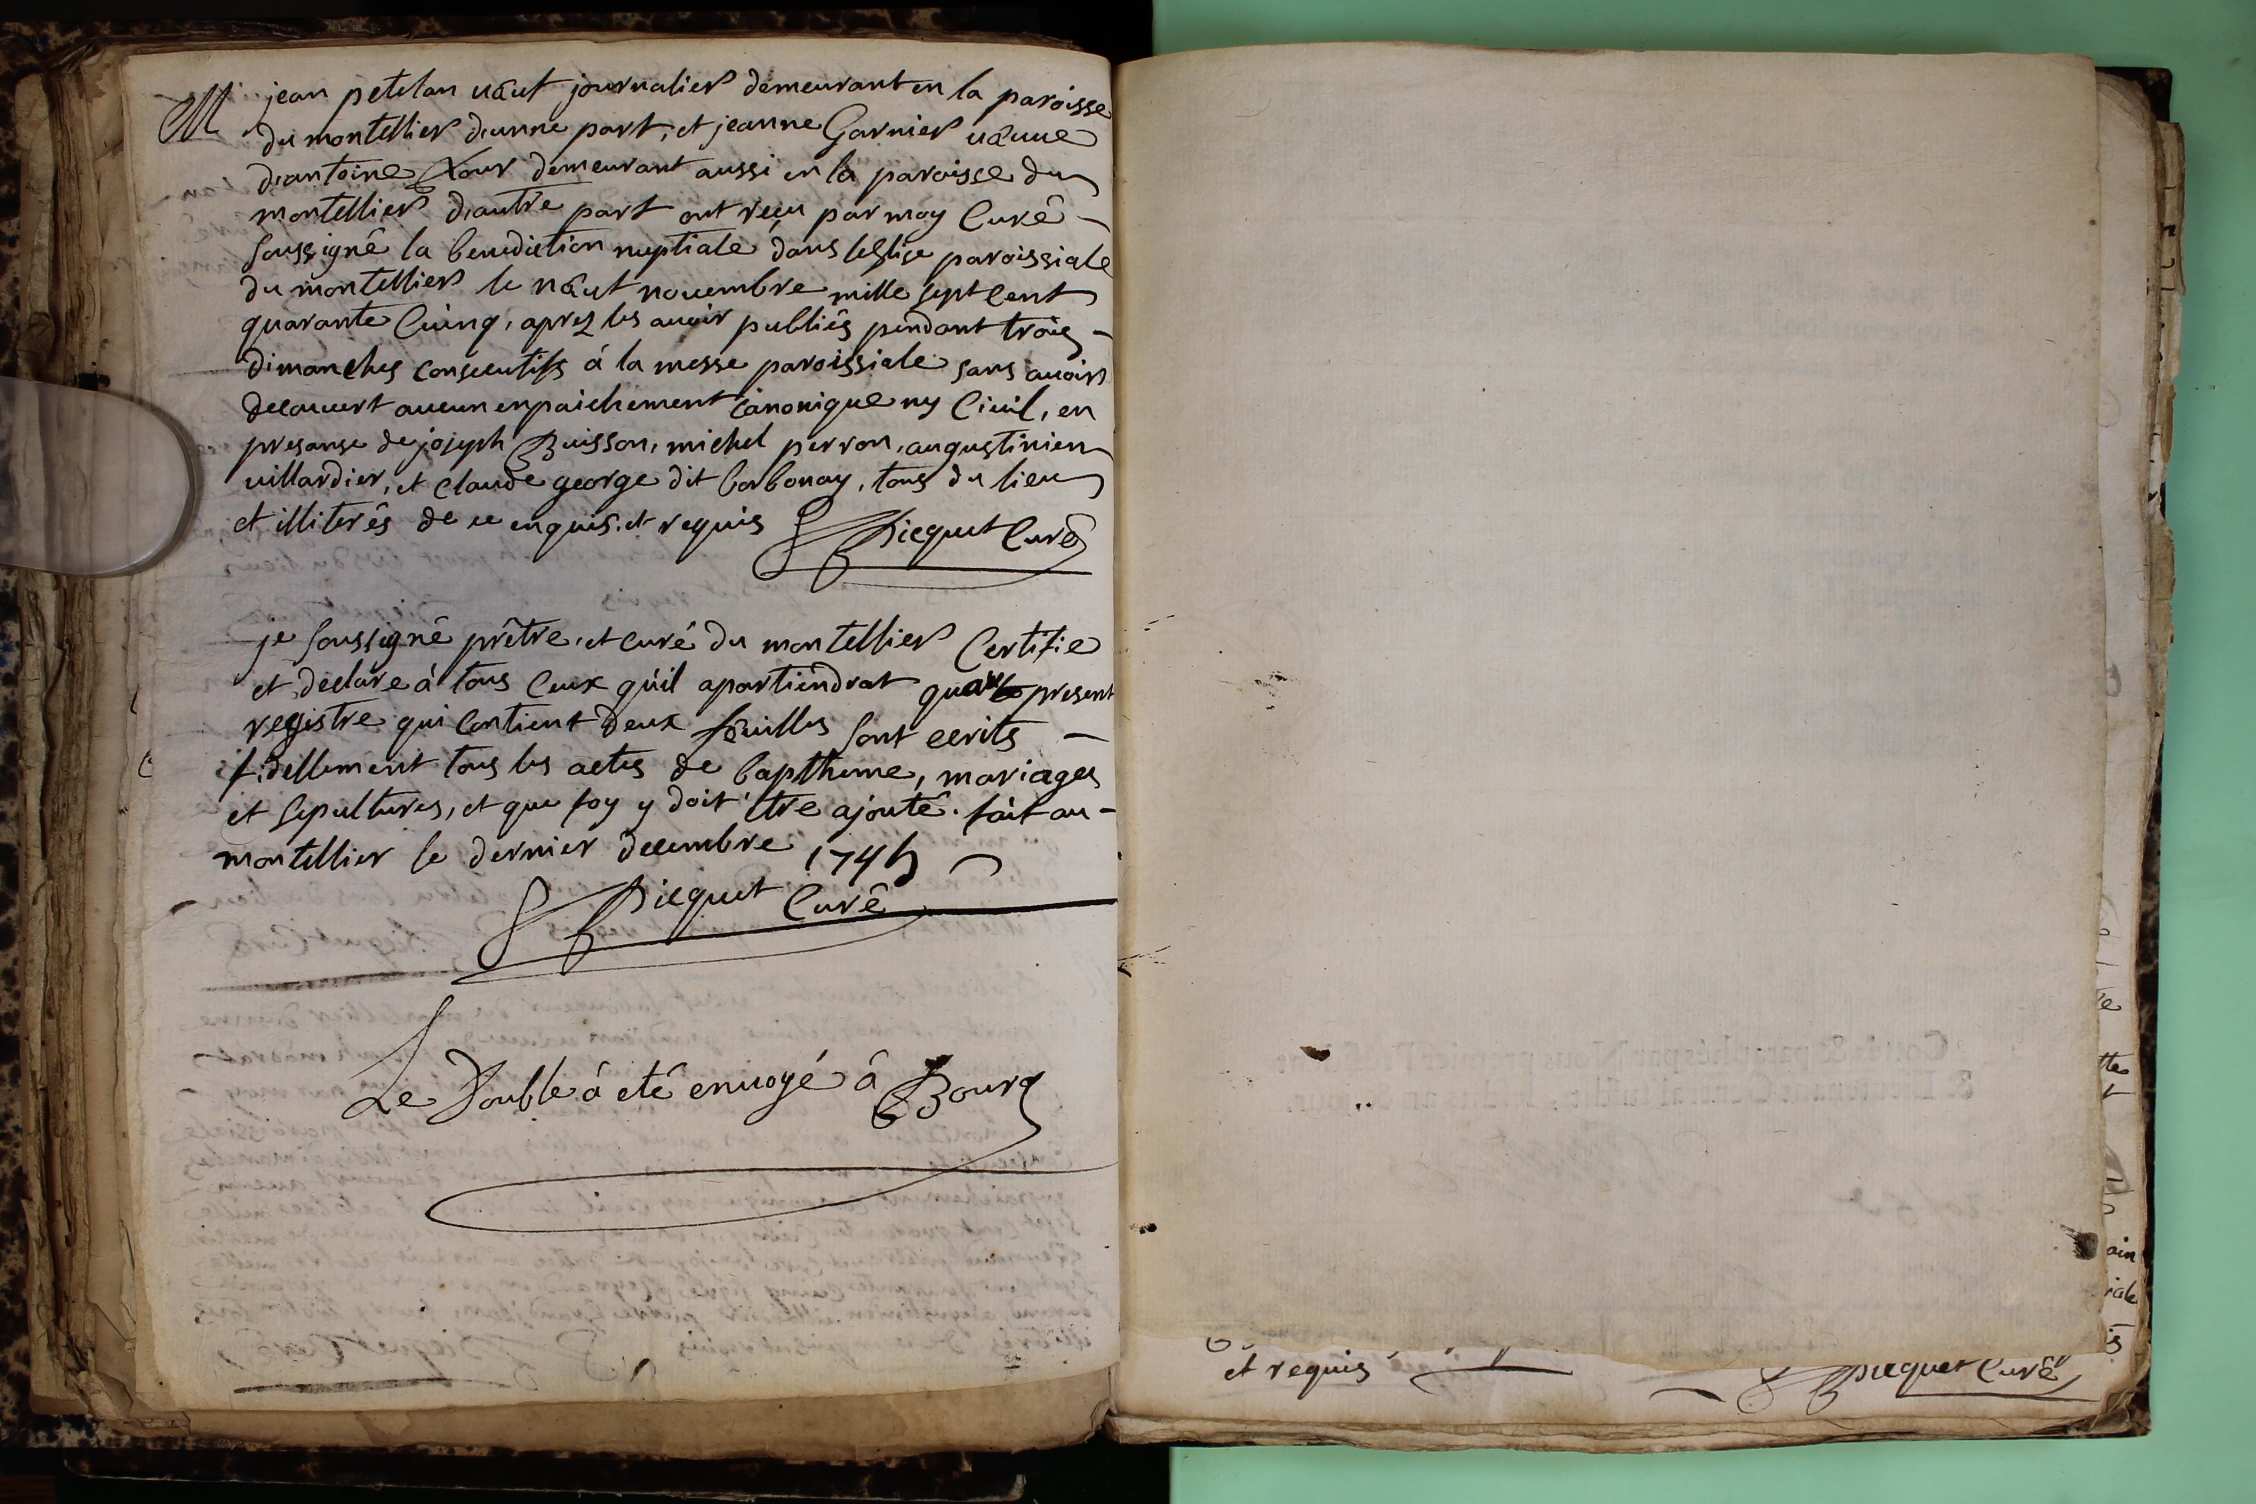 M jean petelan uâut journalier demeurant en la paroisse
du montellier d'unne part, et jeanne Garnier uâuue
d'antoine Roux demeurant aussi en la paroisse du
montellier d'autre part ont reçu par moy Curê
soussignê la benediction nuptiale dans leglise paroissiale
du montellier le nâuf nouembre mille sept cent
quarante Cuinq, aprez les auoir publiês pendant trois
dimanches consecutifs â la messe paroissiale sans auoir
decouuert aucun enpaichement canonique ny Ciuil, en
presanse de joseph Buisson, michel perron, augustinien
uillardier, et claude george dit borbonay, tous du lieu
et illiterês de ce enquis, et requis Picquet Curê
je soussignê prêtre, et curé du montellier Certifie
et declâre â tous Ceux qu'il apartiendrat qu'au present
registre qui contient deux feuilles sont ecrits
fidellement tous les actes de bapthême, mariages
et sepultures, et que foy y doit être ajoutê. fait au
montellier le dernier decembre 1745
Picquet Curê
Le Double â etê enuoyé â Bourg
et requis Picquet Curê